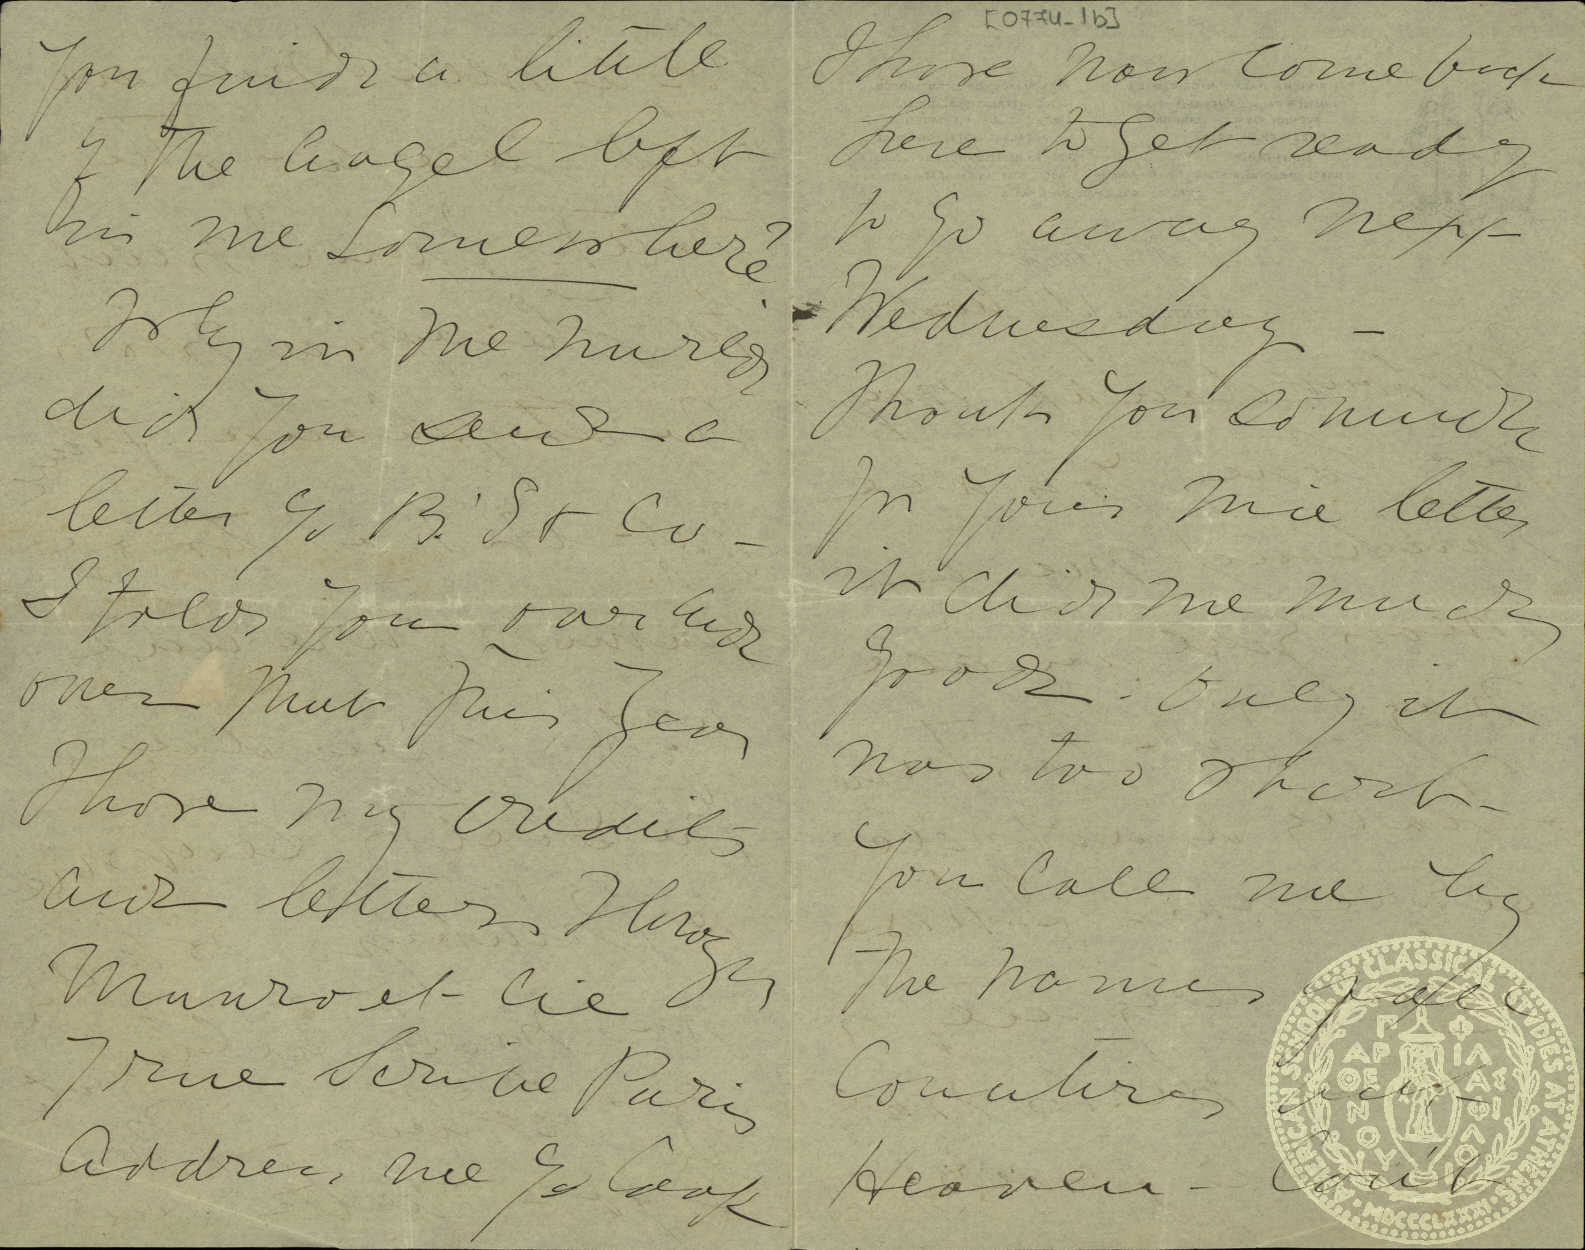 [0774-1b]
you find a little
of the angel left
in me somewhere?
Why in the world
did you send a
letter % B. S & Co -
I told you over and
over that this year
I have my credits
and letters through
Munroe et Cie
7 rue Scribe Paris
Address me % Cook
I have now come back
here to get ready
to go away next
Wednesday -
Thank you so much
for your nice letter
it did me much
good. Only it
was too short -
You call me by
the names of all
countries but
Heaven - Can't
AMERICAN SCHOOL OF CLASSICAL STUDIES AT ATHENS
MDCCCLXXXI
ΠΑΡΘΕΝΟΥ ΦΙΛΑΣ ΦΙΛΟΙ